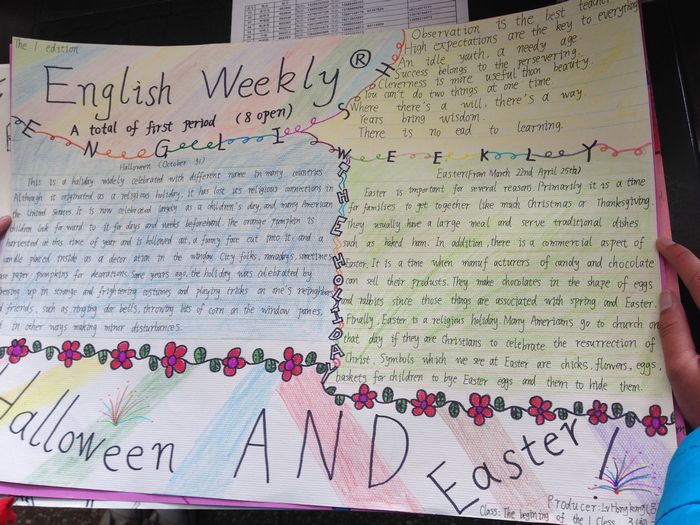 The 1 edition
English Weekly®
A total of first period (8 open)
Observation is the best teacher
High expectations are the key to everything
An idle youth, a needy age
Success belongs to the persevering.
Cleverness is more useful than beauty.
You can't do two things at one time
Where there's a will, there's a way.
Years bring wisdom.
There is no end to learning.
ENGLISH
WEEKLY
THE HOLIDAY
Halloween (October 31)
This is a holiday widely celebrated with different name in many countries
Although it originated as a religious holiday, it has lost its religious connections in
the United States It is now celebrated largely as a children's day, and many American
children look for ward to it for days and weeks beforehand. The orange pumpkin is
harvested at this time of year and is hollowed out a funny face cut into it and a
candle placed inside as a decor ation in the window City folks, nowaday's, sometimes
use paper pumpkins for decorations. Some years ago, the holiday was celebrated by
dressing up in strange and frightening costumes and playing tricks on one's
and friends, such as ringing dor bells, throwing bits of corn on the window panes,
in other ways making minor disturbances.
Easter(From March 22nd April 25th)
Easter is important for several reasons Primarily it is a time
for families to get together like much Christmas or Thanksgiving.
They usually have a large meal and serve traditional dishes
such as baked ham. In addition, there is a commercial aspect of
Easter. It is a time when manuf acturers of candy and chocolate
can sell their products. They make chocolates in the shape of eggs
and rabbits since those things are associated with spring and Easter.
Finally, Easter is a religious holiday. Many Americans go to church on
that day if they are Christians to celebrate the resurrection of
Christ. Symbols which we see at Easter are chicks, flowers, eggs,
baskets for children to bye Easter eggs and them to hide them.
Halloween AND Easter!
Producer: Lv Hong
Class: The beginning of the 1 Class